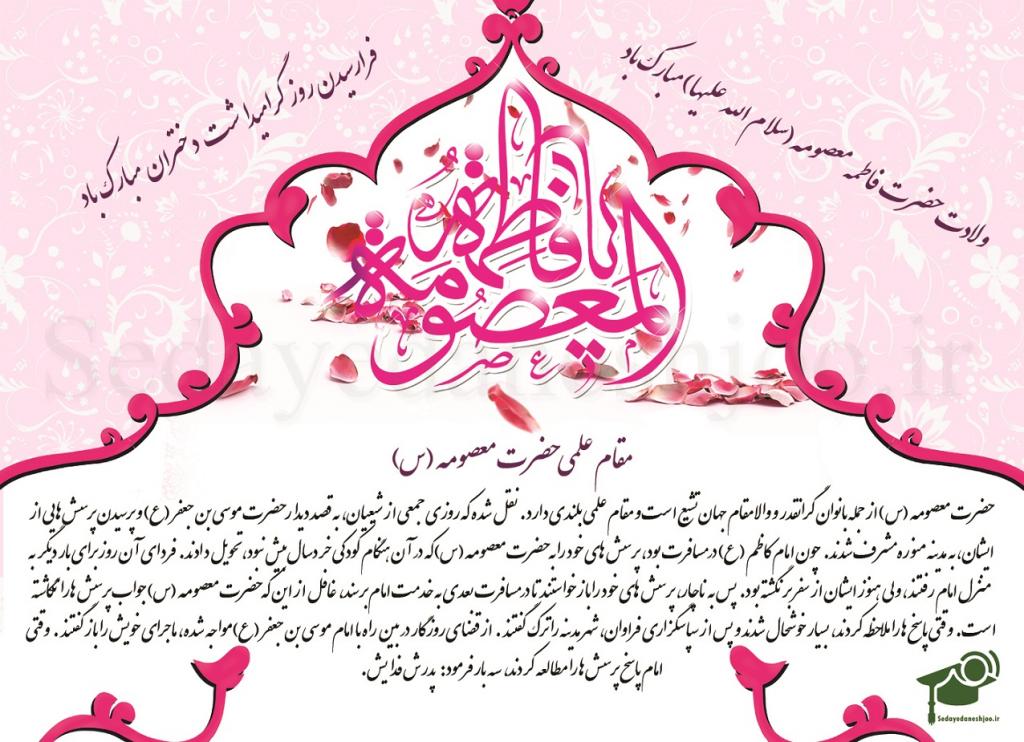 ولادت حضرت فاطمه معصومه (سلام الله علیها) مبارک باد
فرا رسیدن روز گرامیداشت دختران مبارک باد
یا فاطمة
المعصومة
Sedayedaneshjoo.ir
مقام علمی حضرت معصومه (س)
حضرت معصومه (س) از جمله بانوان گرانقدر و والامقام جهان تشیع است و مقام علمی بلندی دارد. نقل شده که روزی جمعی از شیعیان، به قصد دیدار حضرت موسی بن جعفر (ع) و پرسیدن پرسش هایی از
ایشان، به مدینه منوره مشرف شدند. چون امام کاظم (ع) در مسافرت بود، پرسش های خود را به حضرت معصومه (س) که در آن هنگام کودکی خردسال بیش نبود، تحویل دادند. فردای آن روز برای بار دیگر به
منزل امام رفتند، ولی هنوز ایشان از سفر برنگشته بود. پس به ناچار، پرسش های خود را باز خواستند تا در مسافرت بعدی به خدمت امام برسند، غافل از این که حضرت معصومه (س) جواب پرسش ها را نگاشته
است. وقتی پاسخ ها را ملاحظه کردند، بسیار خوشحال شدند و پس از سپاسگزاری فراوان، شهر مدینه را ترک گفتند. از قضای روزگار در بین راه با امام موسی بن جعفر (ع) مواجه شده، ماجرای خویش را باز گفتند. وقتی
امام پاسخ پرسش ها را مطالعه کردند، سه بار فرمود: پدرش فدایش.
Sedayedaneshjoo.ir